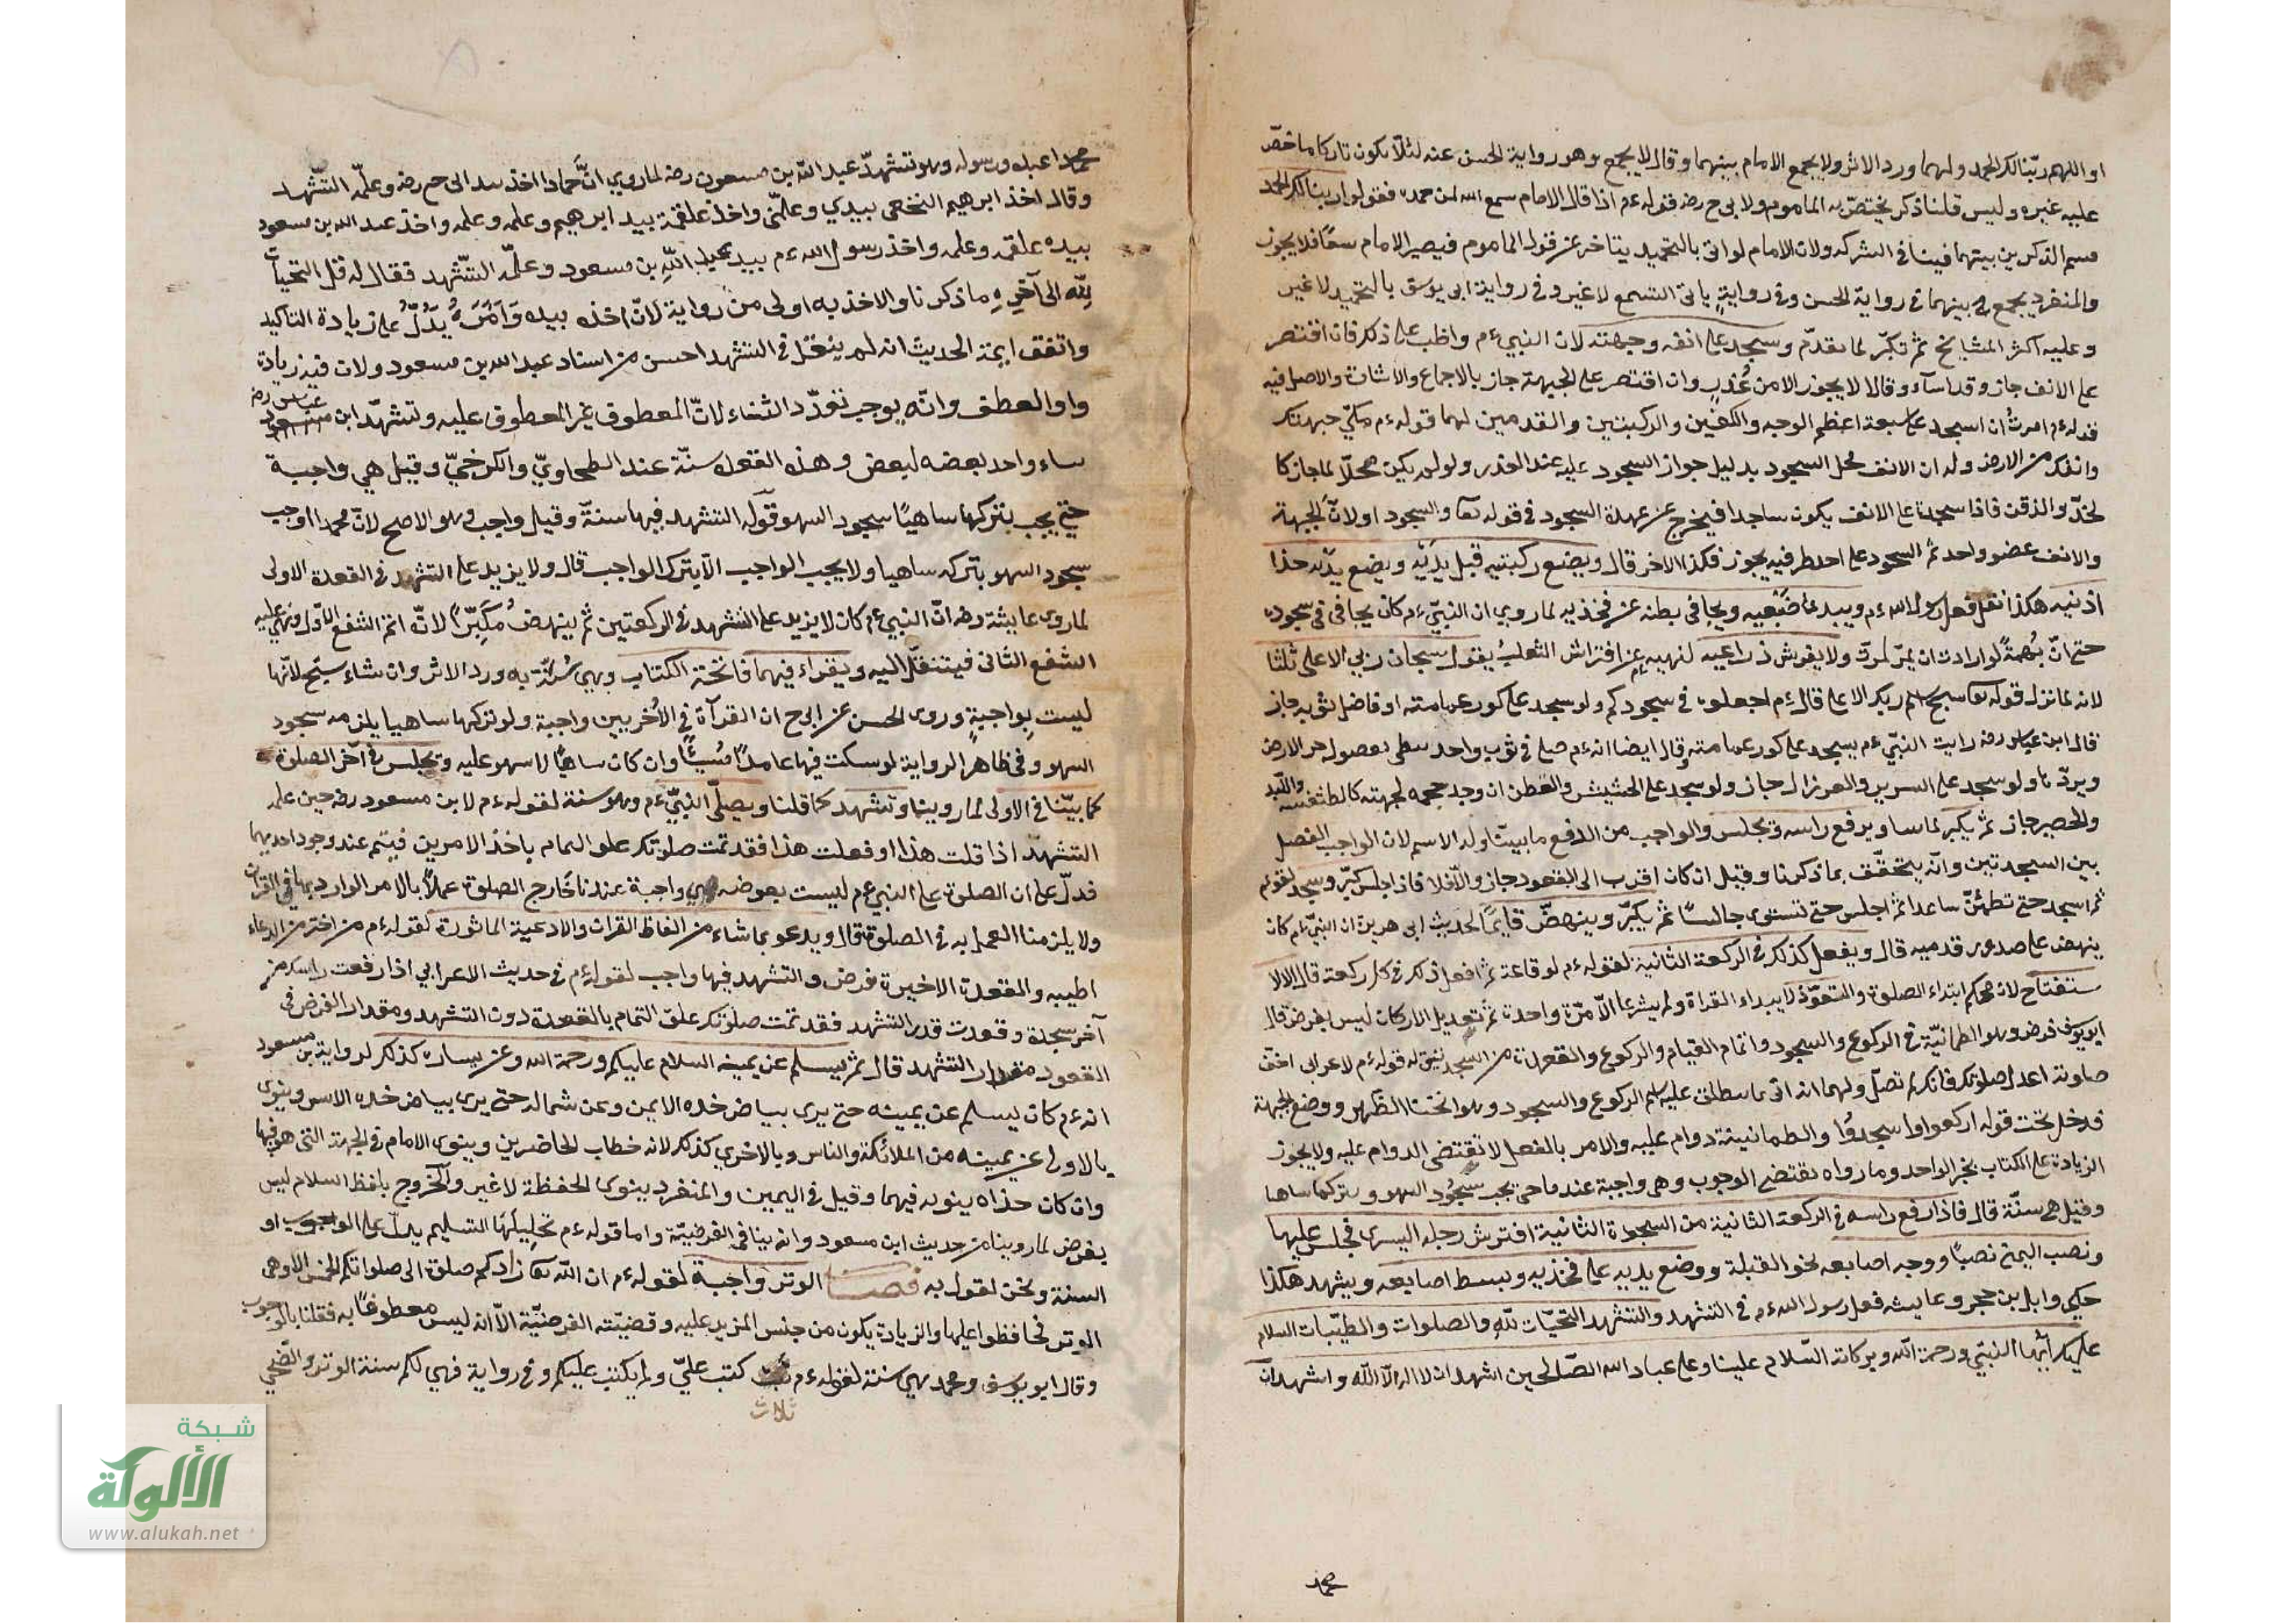 او اللهم ربنا لك الحمد ولهما ورد الاثر ولا يجمع الامام بينهما وقالا يجمع وهو رواية الحسن عنه لئلا يكون تاركا ما حض
عليه غيره وليس قلنا ذكر يختص به الماموم ولابي ح رضه قوله ءم اذا قال الامام سمع الله لمن حمده فقولوا ربنا لك الحمد
قسم الذكرين بينهما فينافي الشركة ولان الامام لو اتى بالتحميد يتاخر عن قول الماموم فيصير الامام تبعا فلا يجوز
والمنفرد يجمع بينهما في رواية الحسن وفي رواية ياتي التسمع لا غير وفي رواية ابي يوسف بالتحميد لا غير
وعليه اكثر المشايخ ثم تكبر لما تقدم وسجد على انفه وجبهته لان النبي ءم واظب على ذلك فان اقتصر
على الانف جاز وقد اساء وقالا لا يجوز الا من عذر وان اقتصر على الجبهة جاز بالاجماع والاصل فيه
قوله ءم امرت ان اسجد على سبعة اعظم الوجه والكفين والركبتين والقدمين لهما قوله ءم مكن جبهتك
وانفك من الارض وله ان الانف محل السجود بدليل جواز السجود عليه عند العذر ولو لم يكن محلا لما جاز كا
لخد والذقن فاذا سجد على الانف يكون ساجدا فيخرج عن عهدة السجود في قوله تعا والسجود اولان الجبهة
والانف عضو واحد ثم السجود على احد طرفيه يجوز فكذا الاخر قال ويضع ركبتيه قبل يديه ويضع يديه حذا
اذنيه هكذا نقل فعل رسول الله ءم ويبدي ضبعيه ويجافي بطنه عن فخذيه لما روي ان النبي ءم كان يجافي في سجوده
حتى ان بهمة لو ارادت ان يمر لمرت ولا يفرش ذراعيه لنهيه عن افتراش الثعلب يقول سبحان ربي الاعلى ثلثا
لانه لما نزل قوله تعا سبح اسم ربك الاعلى قال ءم اجعلوه في سجودكم ولو سجد على كور عمامته او فاضل ثوبه جاز
قال ابن عباس رضه رايت النبي ءم يسجد على كور عمامته وقال ايضا انه ءم صلى في ثوب واحد يتقي بفضوله حر الارض
وبردها ولو سجد على السرير والعرزال جاز ولو سجد على الحشيش والقطن ان وجد حجمه لجبهته كالطنفسة واللبد
والحصير جاز ثم يكبر لما بينا ويرفع راسه ويجلس والواجب من الرفع ما بينا وله الاسم لان الواجب الفصل
بين السجدتين وانه يتحقق بما ذكرنا وقيل ان كان اقرب الى القعود جاز والا فلا فاذا جلس كبر وسجد لقوله
ثم اسجد حتى تطمئن ساجدا ثم اجلس حتى تستوى جالسا ثم يكبر وينهض قايما لحديث ابى هريرة ان النبي ءم كان
ينهض على صدور قدميه قال ويفعل كذلك في الركعة الثانية لقوله ءم لرفاعة ثم افعل ذلك في كل ركعة قال الا الا
ستفتاح لان محله ابتداء الصلوة والتعوذ لابتداء القراة ولم يشرعا الا مرة واحدة ثم تعديل الاركان ليس بفرض قال
ابو يوسف فرض وهو الطمانية في الركوع والسجود واتمام القيام والركوع والقعدة من السجدتين له قوله ءم لاعرابي اخف
صلوته اعد صلوتك فانك لم تصل ولهما انه اتى بما ينطلق عليه اسم الركوع والسجود وهو انحناء الظهر ووضع الجبهة
فدخل تحت قوله اركعوا واسجدوا والطمانينة دوام عليه والامر بالفعل لا تقتضى الدوام عليه ولا يجوز
الزيادة على الكتاب بخبر الواحد وما رواه يقتضى الوجوب وهى واجبة عندنا حتى يجب سجود السهو بتركها ساهيا
وقيل هى سنة قال فاذا رفع راسه في الركعة الثانية من السجدة الثانية افترش رجله اليسرى فجلس عليها
ونصب اليمنى نصبا ووجه اصابعه نحو القبلة ووضع يديه على فخذيه ويبسط اصابعه ويشهد هكذا
حكى وايل بن حجر وعايشه فعل رسول الله ءم في التشهد والتشهد التحيات لله والصلوات والطيبات السلام
عليك ايها النبي ورحمة الله وبركاته السلام علينا وعلى عباد الله الصالحين اشهد ان لا اله الا الله واشهد ان
محمد
محمدا عبده ورسوله وهو تشهد عبد الله بن مسعود رضه لما روي ان حمادا اخذ بيد ابى ح رضه وعلمه التشهد
وقال اخذ ابرهيم النخعى بيدي وعلمنى واخذ علقمة بيد ابرهيم وعلمه واخذ عبد الله بن مسعود
بيده علقمه وعلمه واخذ رسول الله ءم بيد عبد الله بن مسعود وعلمه التشهد فقال له قل التحيات
لله الى آخره ما ذكرنا والاخذ به اولى من رواية لان اخذه بيده وامره يدل على زيادة التاكيد
واتفق ايمة الحديث انه لم ينقل في التشهد احسن من اسناد عبد الله بن مسعود ولان فيه زيادة
واو العطف وانه يوجب تعدد الثناء لان المعطوف غير المعطوف عليه وتشهد ابن عباس رضه
ثناء واحد بعضه لبعض وهذه القعدة سنة عند الطحاوي والكرخي وقيل هي واجبة
حتى يجب بتركها ساهيا سجود السهو قوله التشهد فيها سنة وقيل واجب وهو الاصح لان محمدا اوجب
سجود السهو بتركه ساهيا ولا يجب الواجب الا بترك الواجب قال ولا يزيد على التشهد في القعدة الاولى
لما روى عايشة رضه ان النبي ءم كان لا يزيد على التشهد في الركعتين ثم ينهض مكبرا لانه اتم الشفع الاول وبقي عليه
الشفع الثانى فينتقل اليه ويقراء فيهما فاتحة الكتاب وهي سنة به ورد الاثر وان شاء سبح لانها
ليست بواجبة وروى الحسن عن ابى ح ان القرآة في الاخريين واجبة ولو تركها ساهيا يلزمه سجود
السهو وفى ظاهر الرواية لو سكت فيها عامدا مسيئا وان كان ساهيا لا سهو عليه ويجلس في آخر الصلوة
كما بينا في الاولى لما روينا وتشهد كما قلنا ويصلى النبي ءم وهو سنة لقوله ءم لابن مسعود رضه حين علمه
التشهد اذا قلت هذا او فعلت هذا فقد تمت صلوتك علق التمام باخذ الامرين فيتم عند وجود احديهما
فدل على ان الصلوة على النبي ءم ليست بفرض وهي واجبة عندنا خارج الصلوة عملا بالامر الوارد بها في القران
ولا يلزمنا العمل به في الصلوة قال ويدعو بما شاء من الفاظ القران والادعية الماثورة لقوله ءم من اختر من الدعاء
اطيبه والقعدة الاخيرة فرض والتشهد فيها واجب لقوله ءم في حديث الاعرابي اذا رفعت راسك من
آخر سجدة وقعدت قدر التشهد فقد تمت صلوتك علق التمام بالقعدة دون التشهد ومقدار الفرض في
القعود مقدار التشهد قال ثم يسلم عن يمينه السلام عليكم ورحمة الله وعن يساره كذلك لرواية بن مسعود
انه ءم كان يسلم عن يمينه حتى يرى بياض خده الايمن وعن شماله حتى يرى بياض خده الايسر وينوى
بالاولى عن يمينه من الملائكة والناس وبالاخرى كذلك لانه خطاب الحاضرين وينوى الامام في الجهة التى هو فيها
وان كان حذاه ينويه فيهما وقيل في اليمين والمنفرد ينوى الحفظة لا غير والخروج بلفظ السلام ليس
بفرض لما روينا من حديث ابن مسعود وانه ينافى الفرضية واما قوله ءم تحليلها التسليم يدل على الوجوب او
السنة ونحن نقول به فصل الوتر واجبة لقوله ءم ان الله تعا زادكم صلوة الى صلواتكم الخمس الا وهى
الوتر فحافظوا عليها والزيادة يكون من جنس المزيد عليه وقضيته الفرضية الا انه ليس مقطوعا به فقلنا بالوجوب
وقال ابو يوسف ومحمد هي سنة لقوله ءم ثلث كتب علي ولم يكتب عليكم وفي رواية فهي لكم سنة الوتر والضحي
ثلاث
شبكة
الألوكة
www.alukah.net